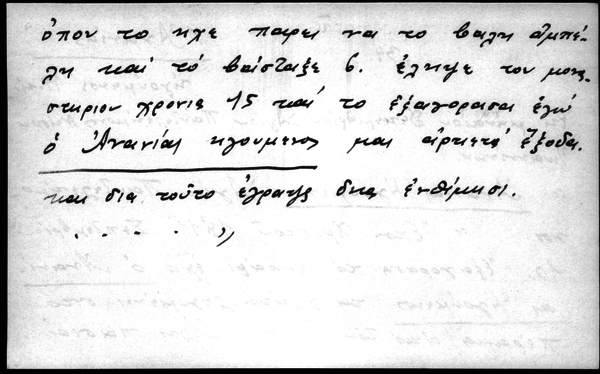 ὁπου το ηχε παρει να το βαλη ἀμπέ-
λη και τό βάσταξε 6. ἔληψε του μονα-
στηριου χρονις 15 καί το ἐξαγορασα ἐγώ
ὁ Ἀνανίας ηγουμενος μαι ἀρκετά ἔξοδα.
και δια τοῦτο ἔγραψα δηα ἐνθίμισι.
. . . . ,,